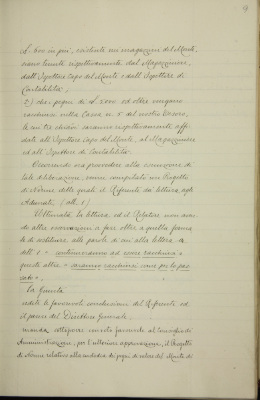 9
£. 600 in più, esistenti nei magazzini del Monte,
siano tenute rispettivamente dal Magazziniere,
dall'Ispettore Capo del Monte e dall'Ispettore di
Contabilità;
2) che i pegni di £. 2000 ed oltre vengano
racchiusi nella Cassa n. 5 del nostro Tesoro,
le cui tre chiavi saranno rispettivamente affi-
date all'Ispettore Capo del Monte, al Magazziniere
ed all'Ispettore di Contabilità.
Occorrendo ora provvedere alla
tale deliberazione, venne compilato un Progetto
di Norme delle quali il Referente dà lettura agli
Adunati, (All. 1)
Ultimata la lettura, ed il Relatore non aven-
do altre osservazioni a fare oltre a quella forma-
le di sostituire alle parole di cui alla lettera
dell'
quelle altre "saranno racchiusi come per lo pas-
sato".
La Giunta
udite le favorevoli conclusioni del Referente ed
il parere del Direttore Generale,
manda sottoporre con voto favorevole al Consiglio di
Amministrazione, per l'ulteriore approvazione, il Progetto
di Norme relative alla custodia dei pegni di valore del Monte di